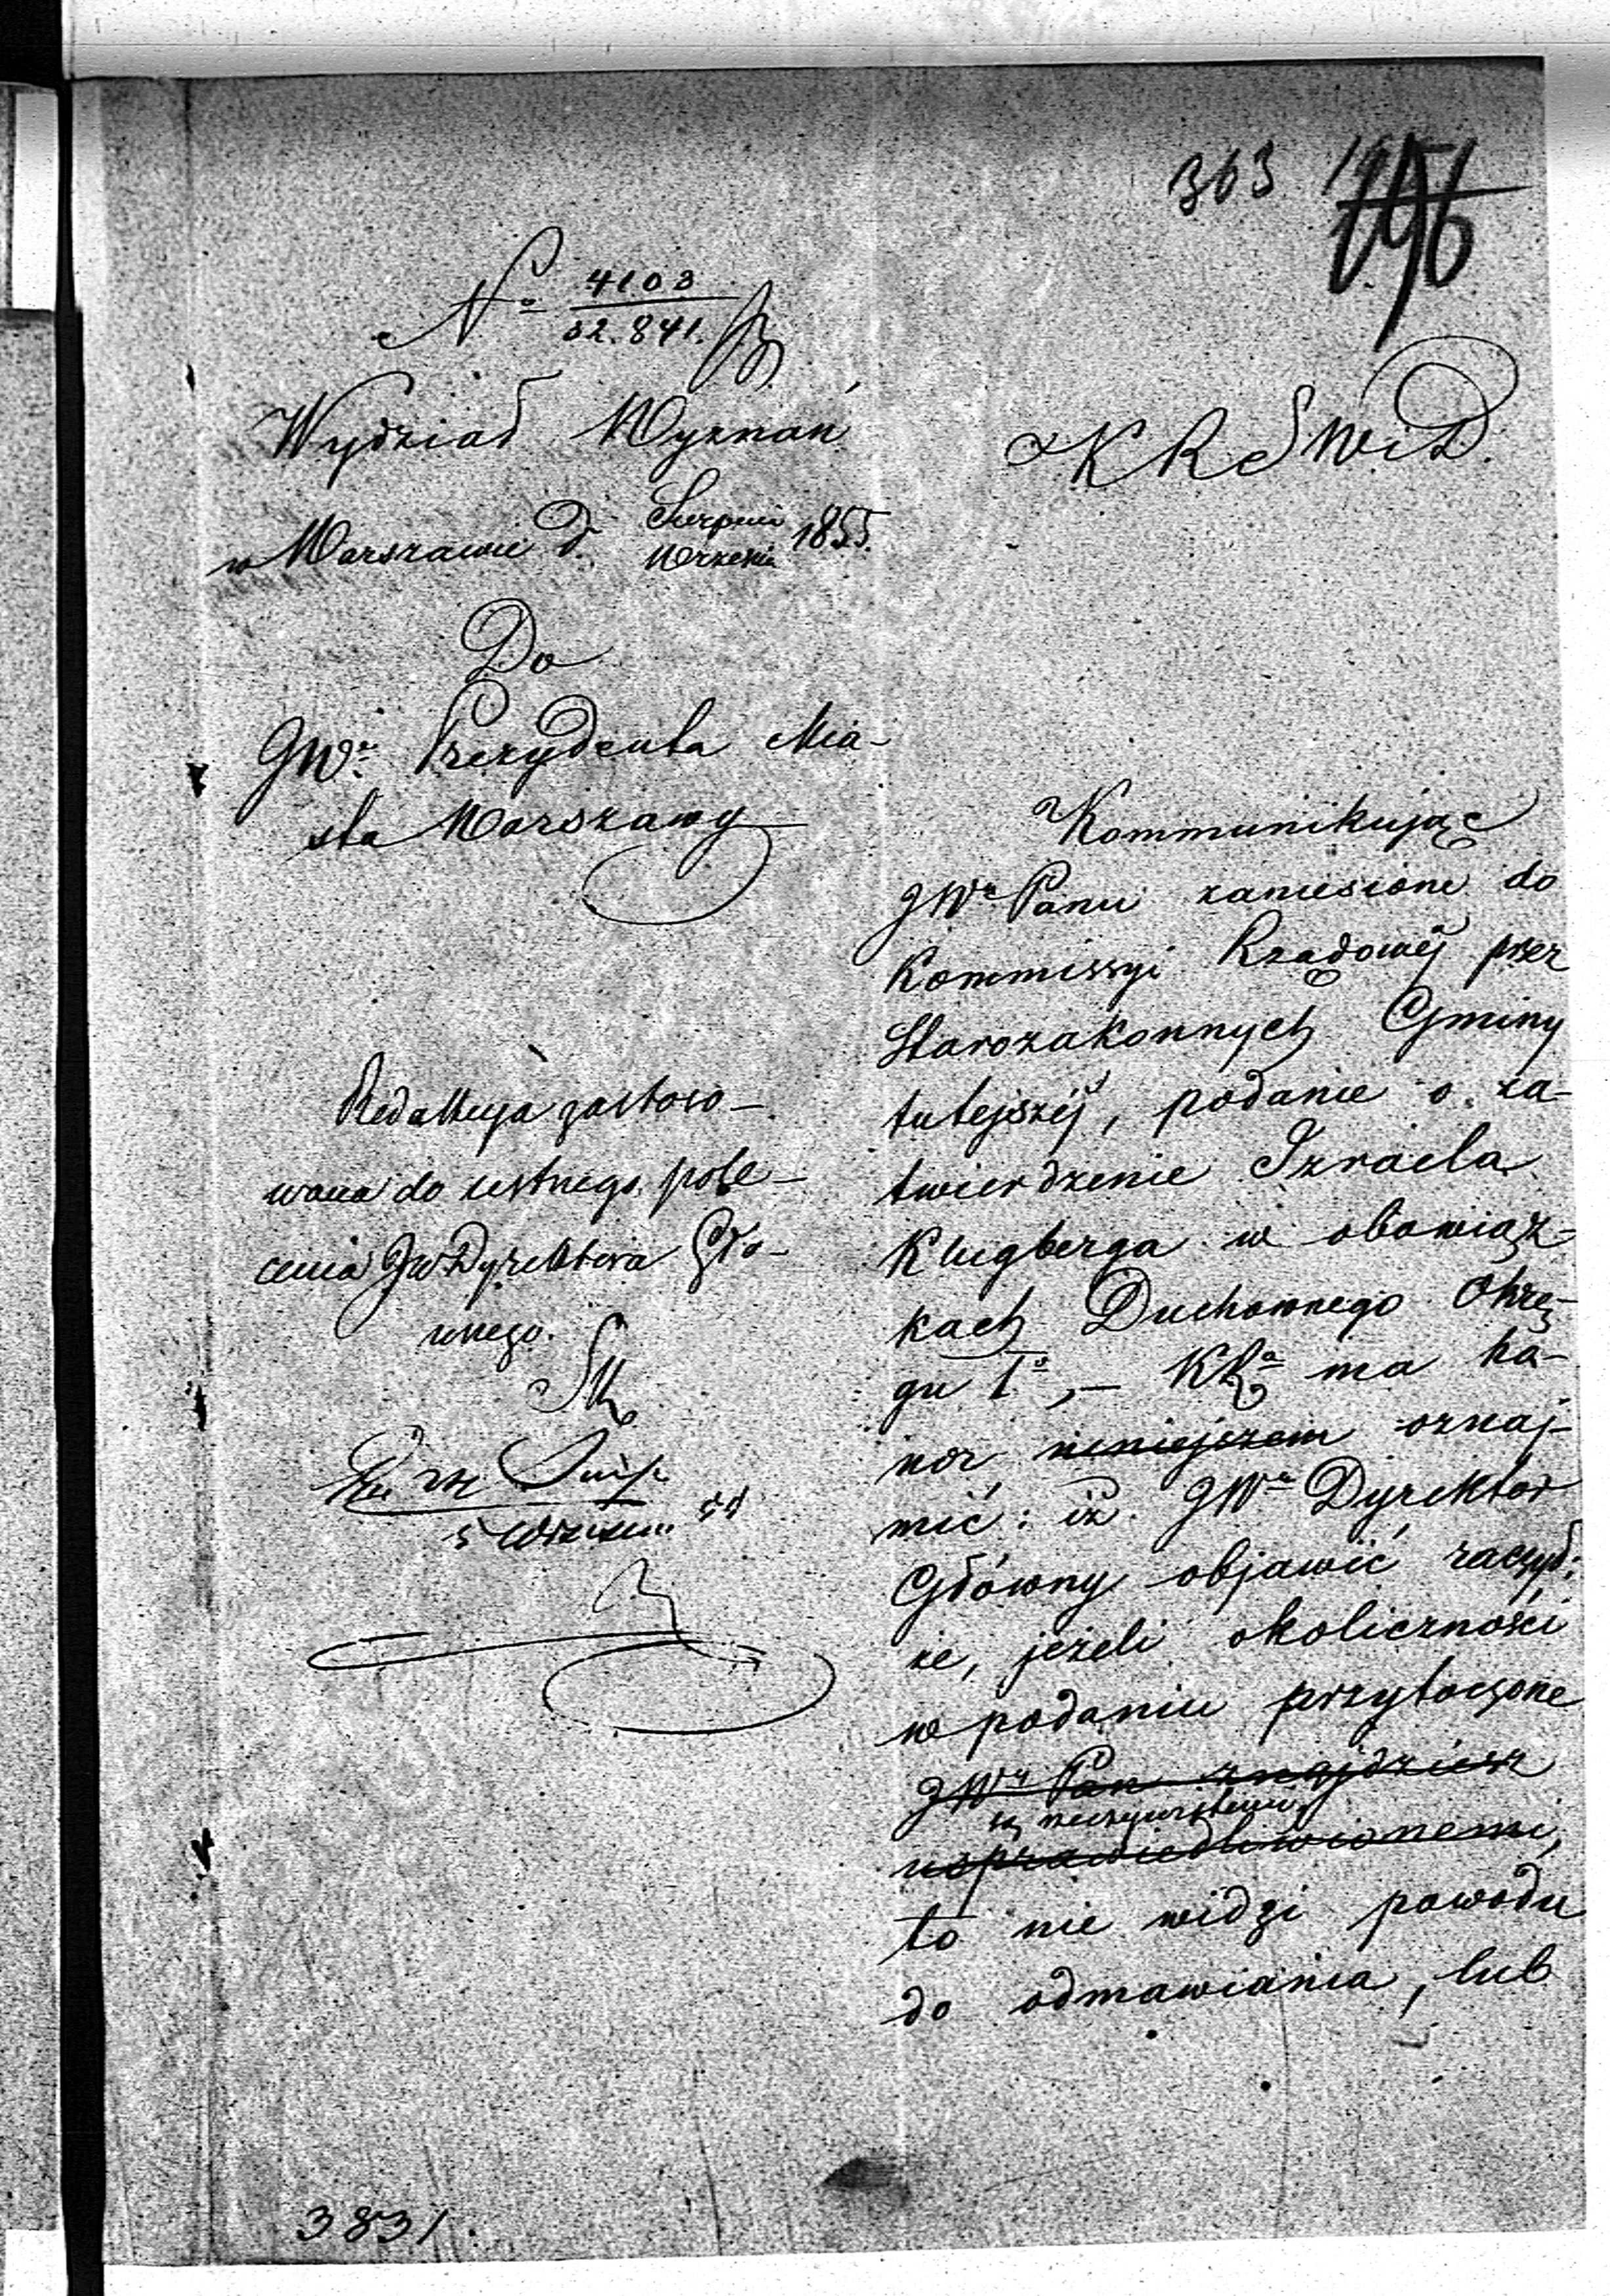 363
196
No 4103
32.841.
Wydział Wyznań
K R S W i D.
w Warszawie d. Sierpnia
Września 1855.
Do
JWo Prezydenta Mia-
sta Warszawy
Redakcya zastoso-
wana do ustnego pole-
cenia JW Dyrektora Głó-
wnego.
5 Wrześn. 55
Kommunikując
JWu Panu zaniesione do
Kommissyi Rządowéj przez
Starozakonnych Gminy
tutejszéj, podanie o za-
twierdzenie Izraela
Klugberga w obowiąz-
kach Duchownego Okrę-
gu 1o,— KRa ma ho-
nor niniejszem oznaj-
mić: iż JWny Dyrektor
Główny objawić raczył:
że, jeżeli okoliczności
w podaniu przytoczone
JWny Pan znajdziesz
są rzeczywistemi,
usprawiedliwionemi,
to nie widzi powodu
do odmawiania, lub
3831.